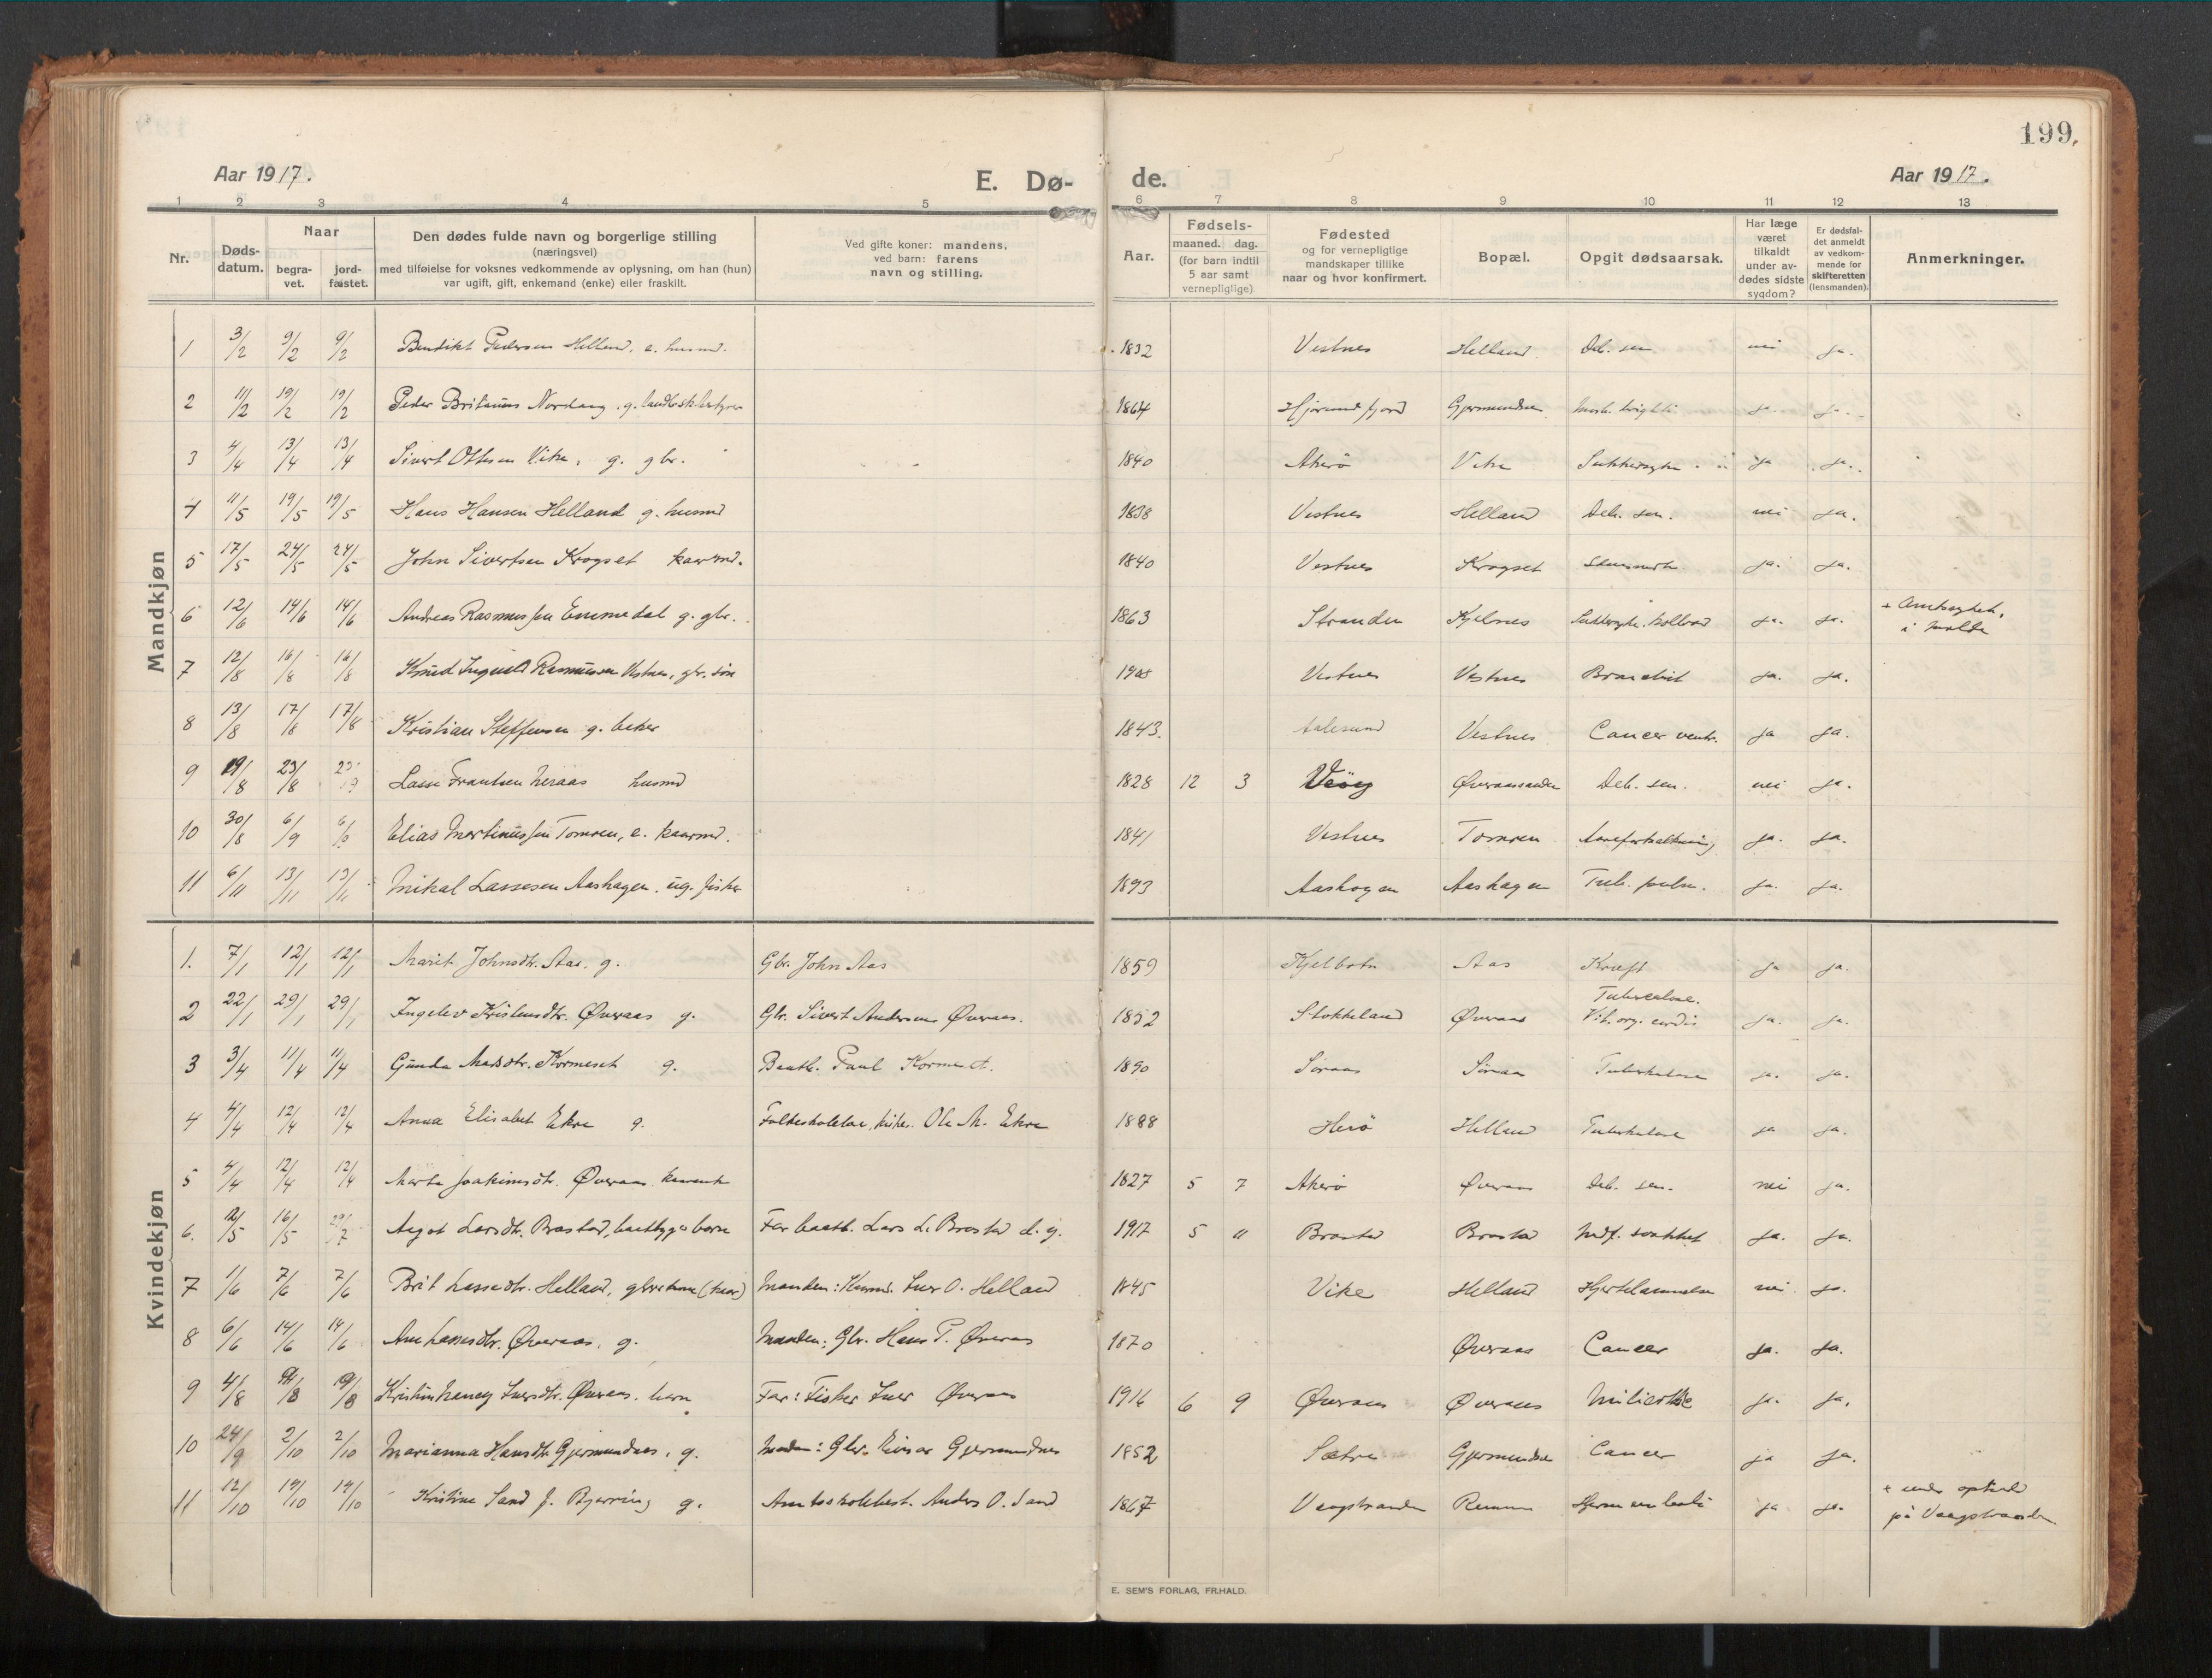 199.
Aar 1917. E. Dø- de. Aar 1917.
1 2 3 4 5 6 7 8 9 10 11 12 13
Nr.
Døds-
datum.
Naar
begra-
vet.
jord-
fæstet.
Den dødes fulde navn og borgerlige stilling
(næringsvei)
med tilføielse for voksnes vedkommende av oplysning, om han (hun)
var ugift, gift, enkemand (enke) eller fraskilt.
Ved gifte koner: mandens,
ved barn: farens
navn og stilling.
Aar.
Fødsels-
maaned. dag.
(for barn indtil
5 aar samt
vernepligtige)
Fødested
og for vernepligtige
mandskaper tillike
naar og hvor konfirmert.
Bopæl.
Opgit dødsaarsak.
Har læge
været
tilkaldt
under av-
dødes sidste
sygdom?
Er dødsfal-
det anmeldt
av vedkom-
mende for
skifteretten
(lensmanden).
Anmerkninger.
Mandkjøn
1 3/2 9/2 9/2 Bendikt Pedersen Helland, e. husmd. 1832 Vestnes Helland Deb. sen. nei ja.
2 11/2 19/2 19/2 Peder Britanus Nordang. g. 1864 Hjørundfjord Gjermundnes ja. ja.
3 4/4 13/4 13/4 Sivert Ottesen Vike, g. gbr. 1840 Akerø Vike Sukkersyke ja ja.
4 11/5 19/5 19/5 Hans Hansen Helland g. husmd 1838 Vestnes Helland Deb. sen. nei ja.
5 17/5 24/5 24/5 John Sivertsen Krogset kaarmd. 1840 Vestnes Krogset ja. ja.
6 12/6 14/6 14/6 Andreas Rasmussen Emmedal g. gbr. 1863 Stranden Kjelnes Sukkersyke. koldbrand ja. ja. + Amtssykeh.
i Molde
7 12/8 16/8 16/8 Knud Ingvald Rasmussen Vestnes, gbr. søn Vestnes Vestnes ja. ja.
8 13/8 17/8 17/8 Kristian Steffensen g. beker 1843. Aalesund Vestnes Cancer ventr. ja ja.
9 19/8 23/8 Lasse Frantsen Neraas husmd 1828 12 3 Veøy Øveraassanden Deb. sen. nei ja.
10 30/8 6/9 6/9 Elias Martinussen Tomren, e. kaarmd. 1841 Vestnes Tomren Aareforkalkning ja. ja.
11 6/11 13/11 13/11 Mikal Lassesen Aashagen. ug. fisker 1893 Aashagen Aashagen Tub. pulm. ja. ja.
Kvindekjøn
1. 7/1 12/1 12/1 Marit Johnsdtr. Aas. g. Gbr. John Aas 1859 Kjelbotn Aas Kræft ja ja.
2 22/1 29/1 29/1 Ingelev Kristensdtr. Øveraas g. Gbr. Sivert Andersen Øveraas. 1852 Stokkeland Øveraas Tuberculose.
Vit. org. cordis ja. ja.
3 3/4 11/4 11/4 Gunda Madsdtr. Kormeset g. Baatb. Paul Kormeset. 1890 Søraas Søraas Tuberkulose ja. ja.
4 4/4 12/4 12/4 Anna Elisabet Ekre g. Folkeskolelær. kirkes. Ole M. Ekre 1888 Herø Helland Tuberkulose ja ja.
5 4/4 12/4 12/4 Marta Joakimsdtr. Øveraas 1827 5 7 Akerø Øveraas Deb. sen. nei ja.
6. 12/5 16/5 Aagot Larsdtr. Brastad, baatbygg. barn Far baatb. Lars L. Brastad d. y. 1917 5 " Brastad Brastad Medf. svakhet ja. ja.
7 1/6 7/6 7/6 Brit Lassedtr. Helland, gbrkone (kaar) Manden: Kaarmd. Iver O. Helland 1845 Vike Helland Hjertelammelse nei ja.
8 6/6 14/6 14/6 Ane Lassesdtr. Øveraas, g. Manden: Gbr. Hans P. Øveraas 1870 Øveraas Cancer ja. ja.
9 4/8 /8 19/8 Kristine Nancy Iversdtr. Øveraas. barn Far: Fisker Iver Øveraas 1916 6 9 Øveraas Øveraas ja. ja.
10 24/9 2/10 2/10 Marianna Hansdtr Gjermundnes, g. Manden: Gbr. Einar Gjermundnes 1852 Sætre Gjermundnes Cancer ja ja.
11 12/10 19/10 19/10 Kristine Sand f. Bjerring g. Amtsskolebest. Anders O. Sand 1867 Vaagstranden ja ja. + under ophold
på Vaagstranden
E. SEM'S FORLAG, FR.HALD.